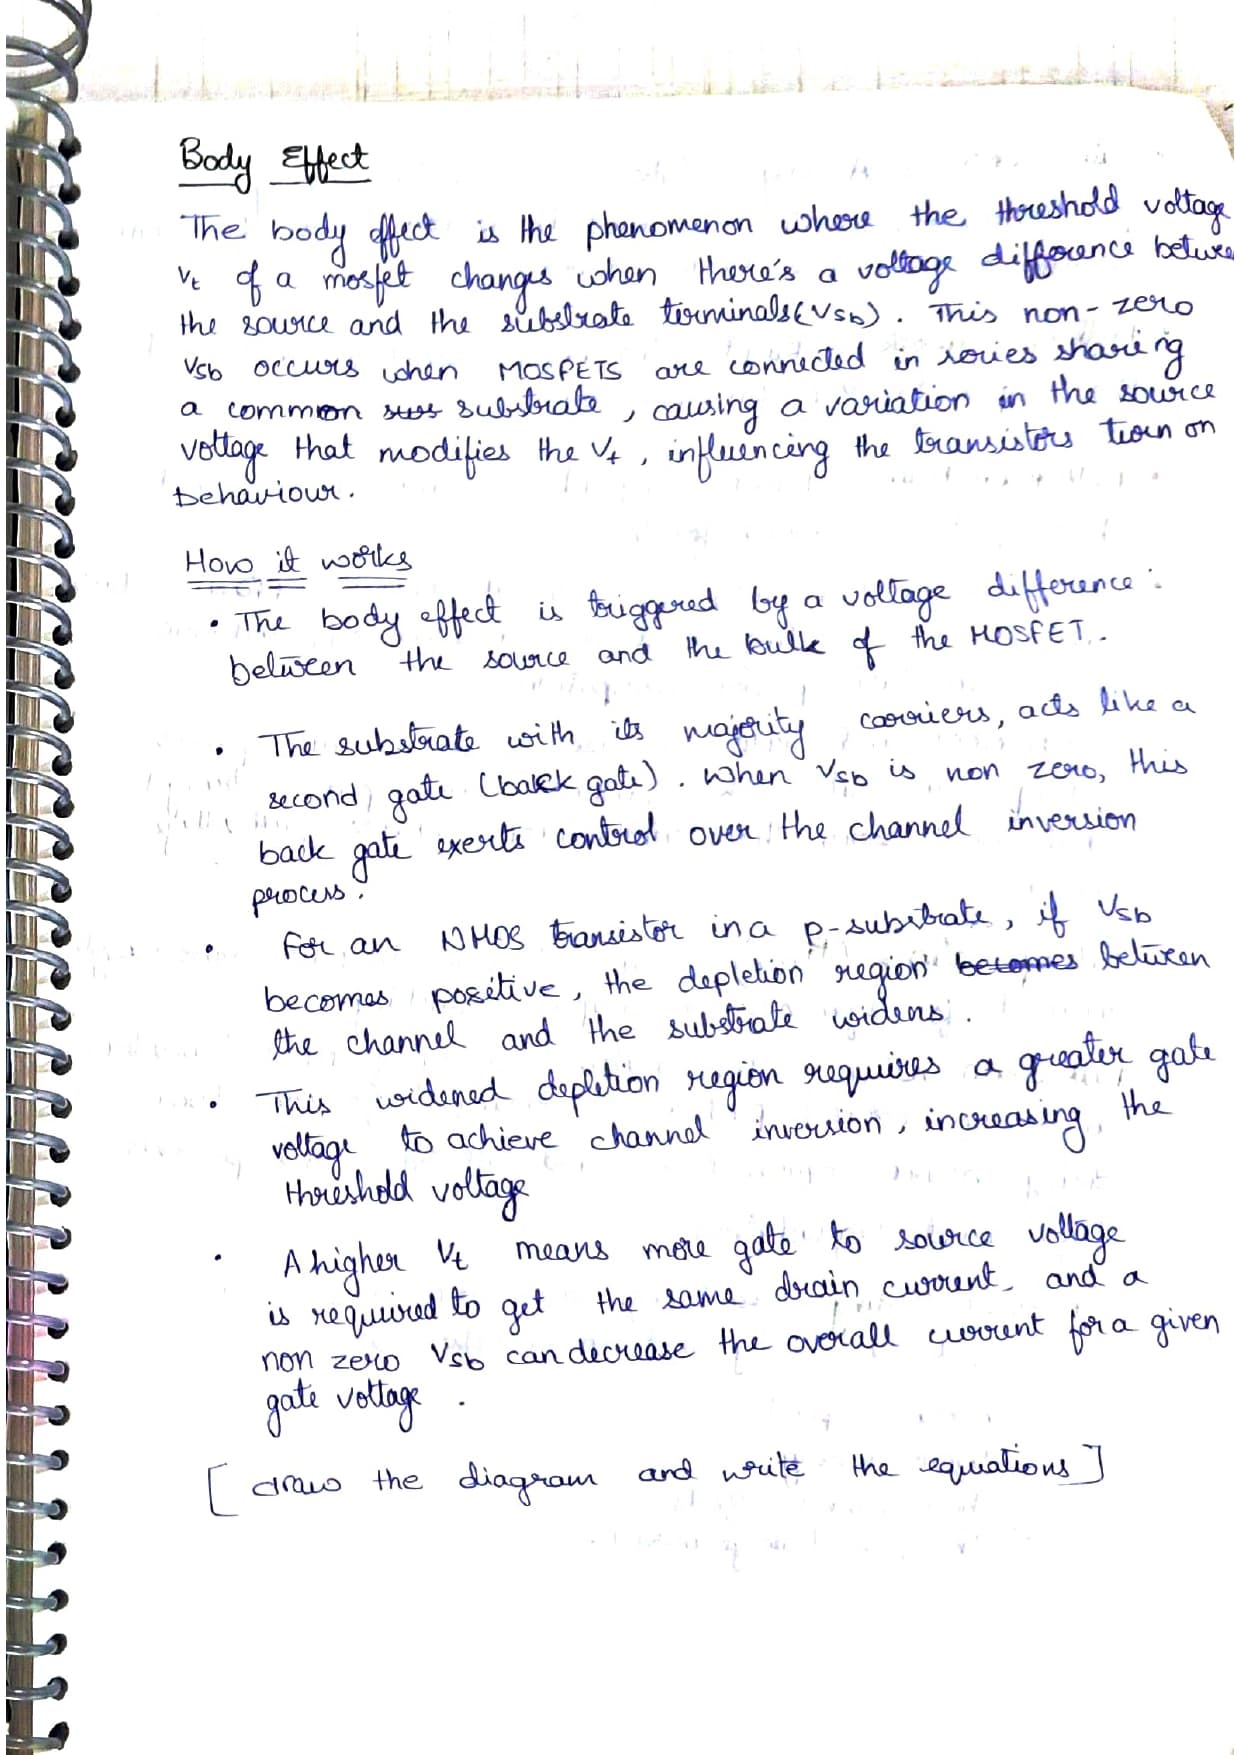 Body Effect
The body effect is the phenomenon where the threshold voltage
Vt of a mosfet changes when there's a voltage difference betwee
the source and the substrate terminals (Vsb). This non-zero
Vsb occurs when MOSFETS are connected in series sharing
a common substrate, causing a variation in the source
voltage that modifies the Vt, influencing the transistors turn on
behaviour.
How it works
• The body effect is triggered by a voltage difference
between the source and the bulk of the MOSFET.
• The substrate with its majority carriers, acts like a
second gate (back gate). When Vsb is non zero, this
back gate exerts control over the channel inversion
process.
• For an NMOS transistor in a p-substrate, if Vsb
becomes positive, the depletion region becomes between
the channel and the substrate widens.
• This widened depletion region requires a greater gate
voltage to achieve channel inversion, increasing the
threshold voltage
• A higher Vt means more gate to source voltage
is required to get the same drain current and a
non zero Vsb can decrease the overall current for a given
gate voltage.
[draw the diagram and write the equations]